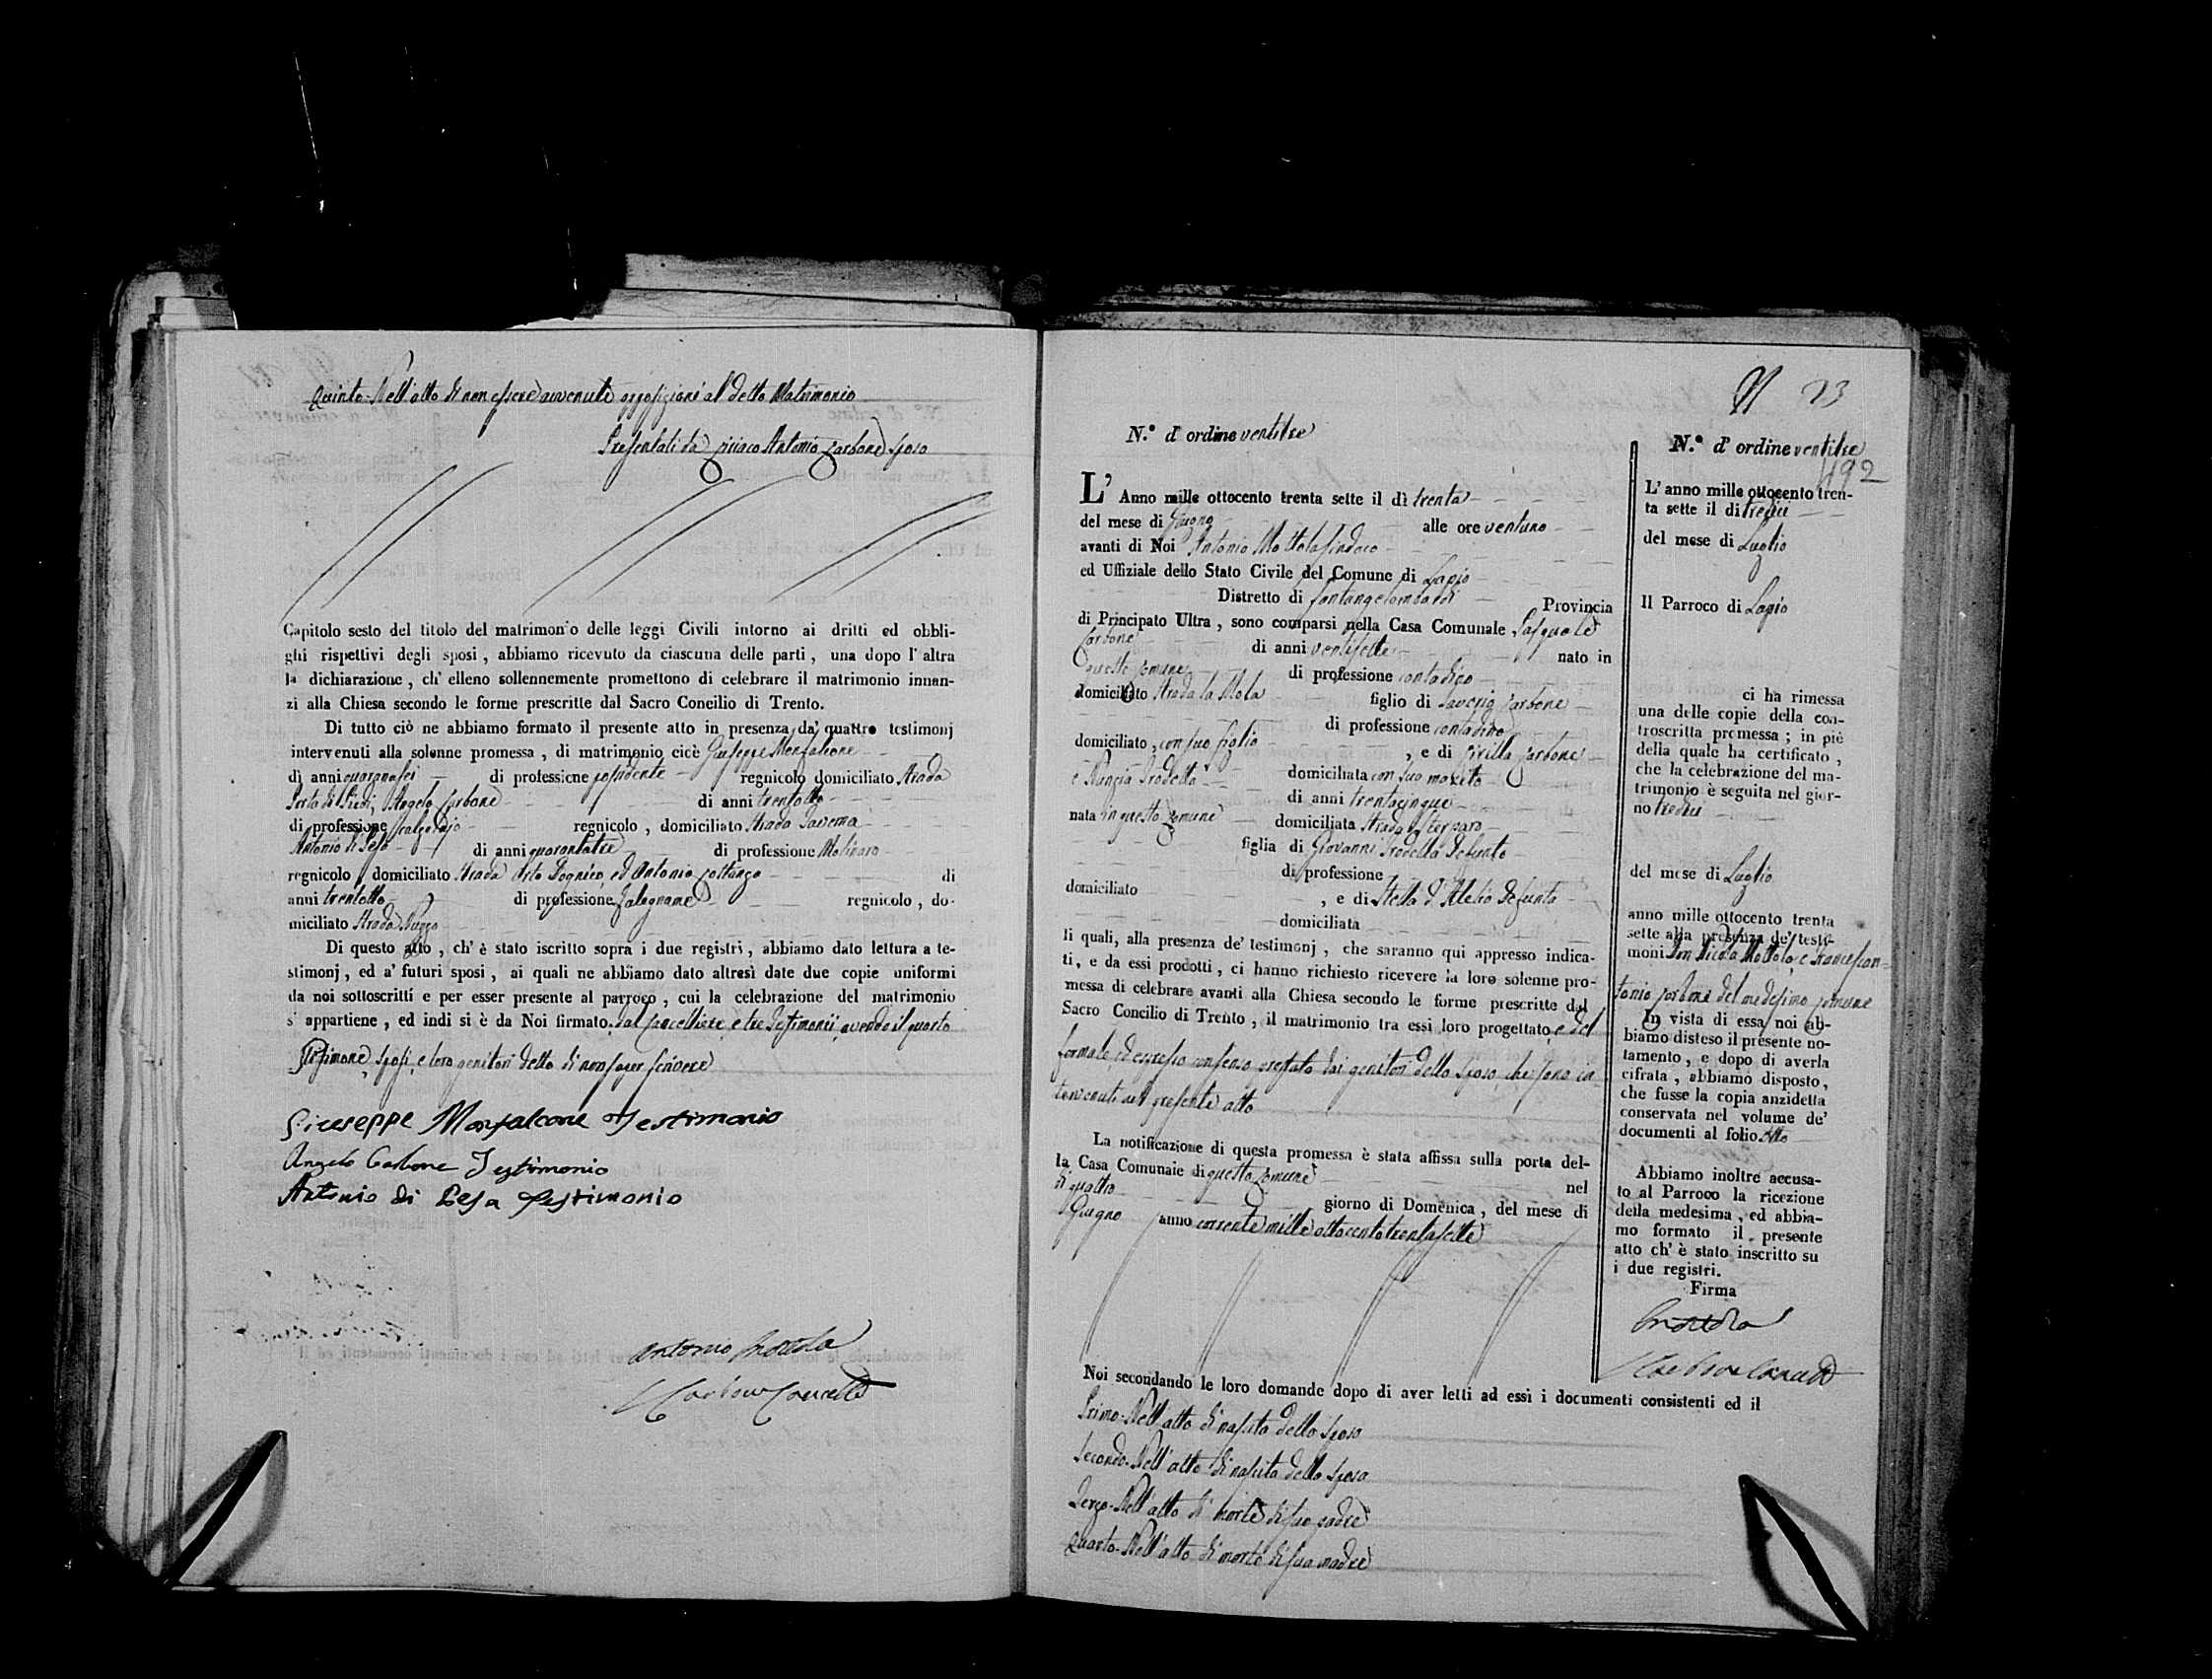 Quinto- Nell'atto di non essere avvenute opposizioni al detto Matrimonio
Presentati da Ciriaco Antonio Carbone sposo
Capitolo sesto del titolo del matrimonio delle leggi Civili intorno ai dritti ed obbli-
ghi rispettivi degli sposi, abbiamo ricevuto da ciascuna delle parti, una dopo l'altra
la dichiarazione, ch'elleno sollennemente promettono di celebrare il matrimonio innan-
zi alla Chiesa secondo le forme prescritte dal Sacro Concilio di Trento.
Di tutto ciò ne abbiamo formato il presente atto in presenza da' quattro testimonj
intervenuti alla solenne promessa, di matrimonio cioè Giuseppe Monfalcone
di anni quarantasei di professione possidente regnicolo domiciliato Strada
Porta di Piedi, Angelo Carbone di anni trentotto
di professione scalpellino regnicolo, domiciliato Strada Taverna
Antonio di Pesa di anni quarantatre di professione Molinaro
regnicolo domiciliato Strada ed Antonio di
anni trentotto di professione falegname regnicolo, do-
miciliato Strada Puzzo
Di questo atto, ch'è stato iscritto sopra i due registri, abbiamo dato lettura a te-
stimonj, ed a' futuri sposi, ai quali ne abbiamo dato altresì date due copie uniformi
da noi sottoscritti e per esser presente al parroco, cui la celebrazione del matrimonio
s'appartiene, ed indi si è da Noi firmato, dal Cancelliere, e tre Testimonii, avendo il quarto
Testimone, sposi, e loro genitori detto di non saper scrivere
Giuseppe Monfalcone Testimonio
Angelo Carbone Testimonio
Antonio di Pesa Testimonio
Antonio Mottola
Carbone Cancell.
23
N.° d'ordine ventitre
L'Anno mille ottocento trenta sette il dì trenta
del mese di Giugno alle ore ventuno
avanti di Noi Antonio Mottola Sindaco
ed Uffiziale dello Stato Civile del Comune di Lapio
Distretto di Santangelombardi Provincia
di Principato Ultra, sono comparsi nella Casa Comunale Pasquale
Carbone di anni ventisette nato in
questo Comune di professione contadino
domiciliato Strada la Mola figlio di Saverio Carbone
di professione contadino
domiciliato, con suo figlio, e di Sivilla Carbone
domiciliata con suo marito
e Nunzia Trodella di anni trentacinque
nata in questo Comune domiciliata Strada
figlia di Giovanni Trodella Defunto
di professione
domiciliato, e di Stella d'Alesio Defunta
domiciliata
li quali, alla presenza de' testimonj, che saranno qui appresso indica-
ti, e da essi prodotti, ci hanno richiesto ricevere la loro solenne pro-
messa di celebrare avanti alla Chiesa secondo le forme prescritte dal
Sacro Concilio di Trento, il matrimonio tra essi loro progettato, e del
formale, ed espresso consenso prestato dai genitori dello sposo che sono in-
tervenuti nel presente atto
La notificazione di questa promessa è stata affissa sulla porta del-
la Casa Comunale di questo Comune nel
di quattro giorno di Domenica, del mese di
Giugno anno corrente mille ottocento trentasette
Noi secondando le loro domande dopo di aver letti ad essi i documenti consistenti ed il
Primo- Nell'atto di nascita dello sposo
Secondo- Nell'atto di nascita della sposa
Terzo- Nell'atto di morte di suo padre
Quarto- Nell'atto di morte di sua madre
N.° d'ordine ventitre
192
L'anno mille ottocento tren-
ta sette il di tredici
del mese di Luglio
Il Parroco di Lapio
ci ha rimessa
una delle copie della con-
troscritta promessa; in piè
della quale ha certificato,
che la celebrazione del ma-
trimonio è seguita nel gior-
no tredici
del mese di Luglio
anno mille ottocento trenta
sette alla presenza de' testi-
moni Don Nicola Mottola, e Francescan-
tonio Carbone del medesimo Comune
In vista di essa noi ab-
biamo disteso il presente no-
tamento, e dopo di averla
cifrata, abbiamo disposto,
che fusse la copia anzidetta
conservata nel volume de'
documenti al folio otto
Abbiamo inoltre accusa-
to al Parroco la ricezione
della medesima, ed abbia-
mo formato il presente
atto ch'è stato inscritto su
i due registri.
Firma
Mottola
Carbone Cancell.